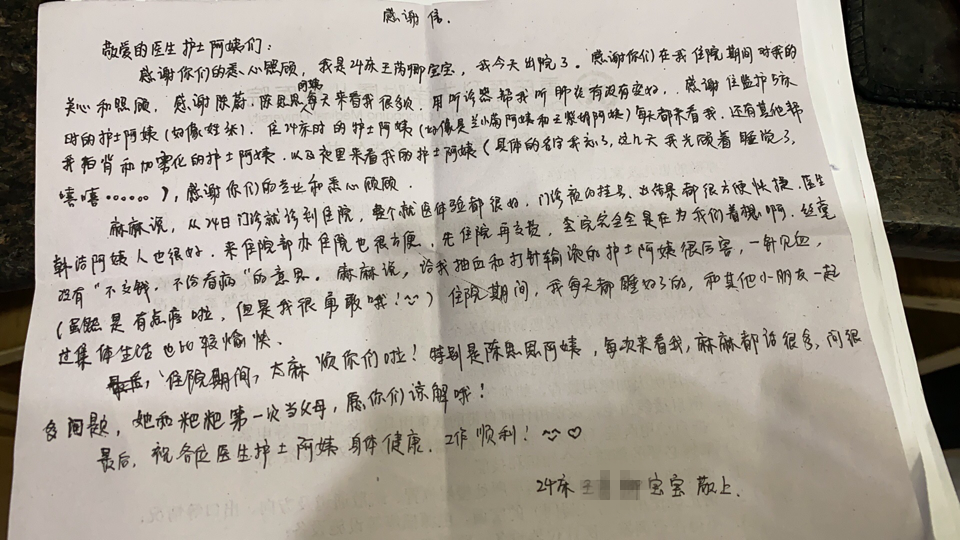 感谢信.
敬爱的医生护士阿姨们:
感谢你们的悉心照顾,我是24床王芮卿宝宝,我今天出院了。感谢你们在我住院期间对我的
关心和照顾,感谢陈蔚、陈思思阿姨每天来看我很多次,用听诊器帮我听肺炎有没有变好..感谢住监护5床
时的护士阿姨(好像姓张).住24床时的护士阿姨(好像是兰小菊阿姨和王紫娟阿姨)每天都来看我.还有其他帮
我拍背和加雾化的护士阿姨.以及夜里来看我的护士阿姨(具体的名字我忘了,这几天我光顾着睡觉了,
嘻嘻……),感谢你们的专业和悉心照顾.
麻麻说,从24日门诊就诊到住院,整个就医体验都很好.门诊预约挂号、出结果都很方便快捷.医生
韩洁阿姨人也很好.来住院部办住院也很方便.先住院再交费,医院完完全全是在为我们着想啊.丝毫
没有“不交钱,不给看病”的意思.麻麻说,给我抽血和打针输液的护士阿姨很厉害,一针见血,
(虽然是有点疼啦,但是我很勇敢哦!~)住院期间,我每天都睡好了的,和其他小朋友一起
过集体生活也比较愉快.
住院期间,太麻烦你们啦!特别是陈思思阿姨,每次来看我,麻麻都话很多,问很
多问题,她和粑粑第一次当父母,愿你们谅解哦!
最后,祝各位医生护士阿姨身体健康.工作顺利!~♡
24床 王 宝宝 敬上.